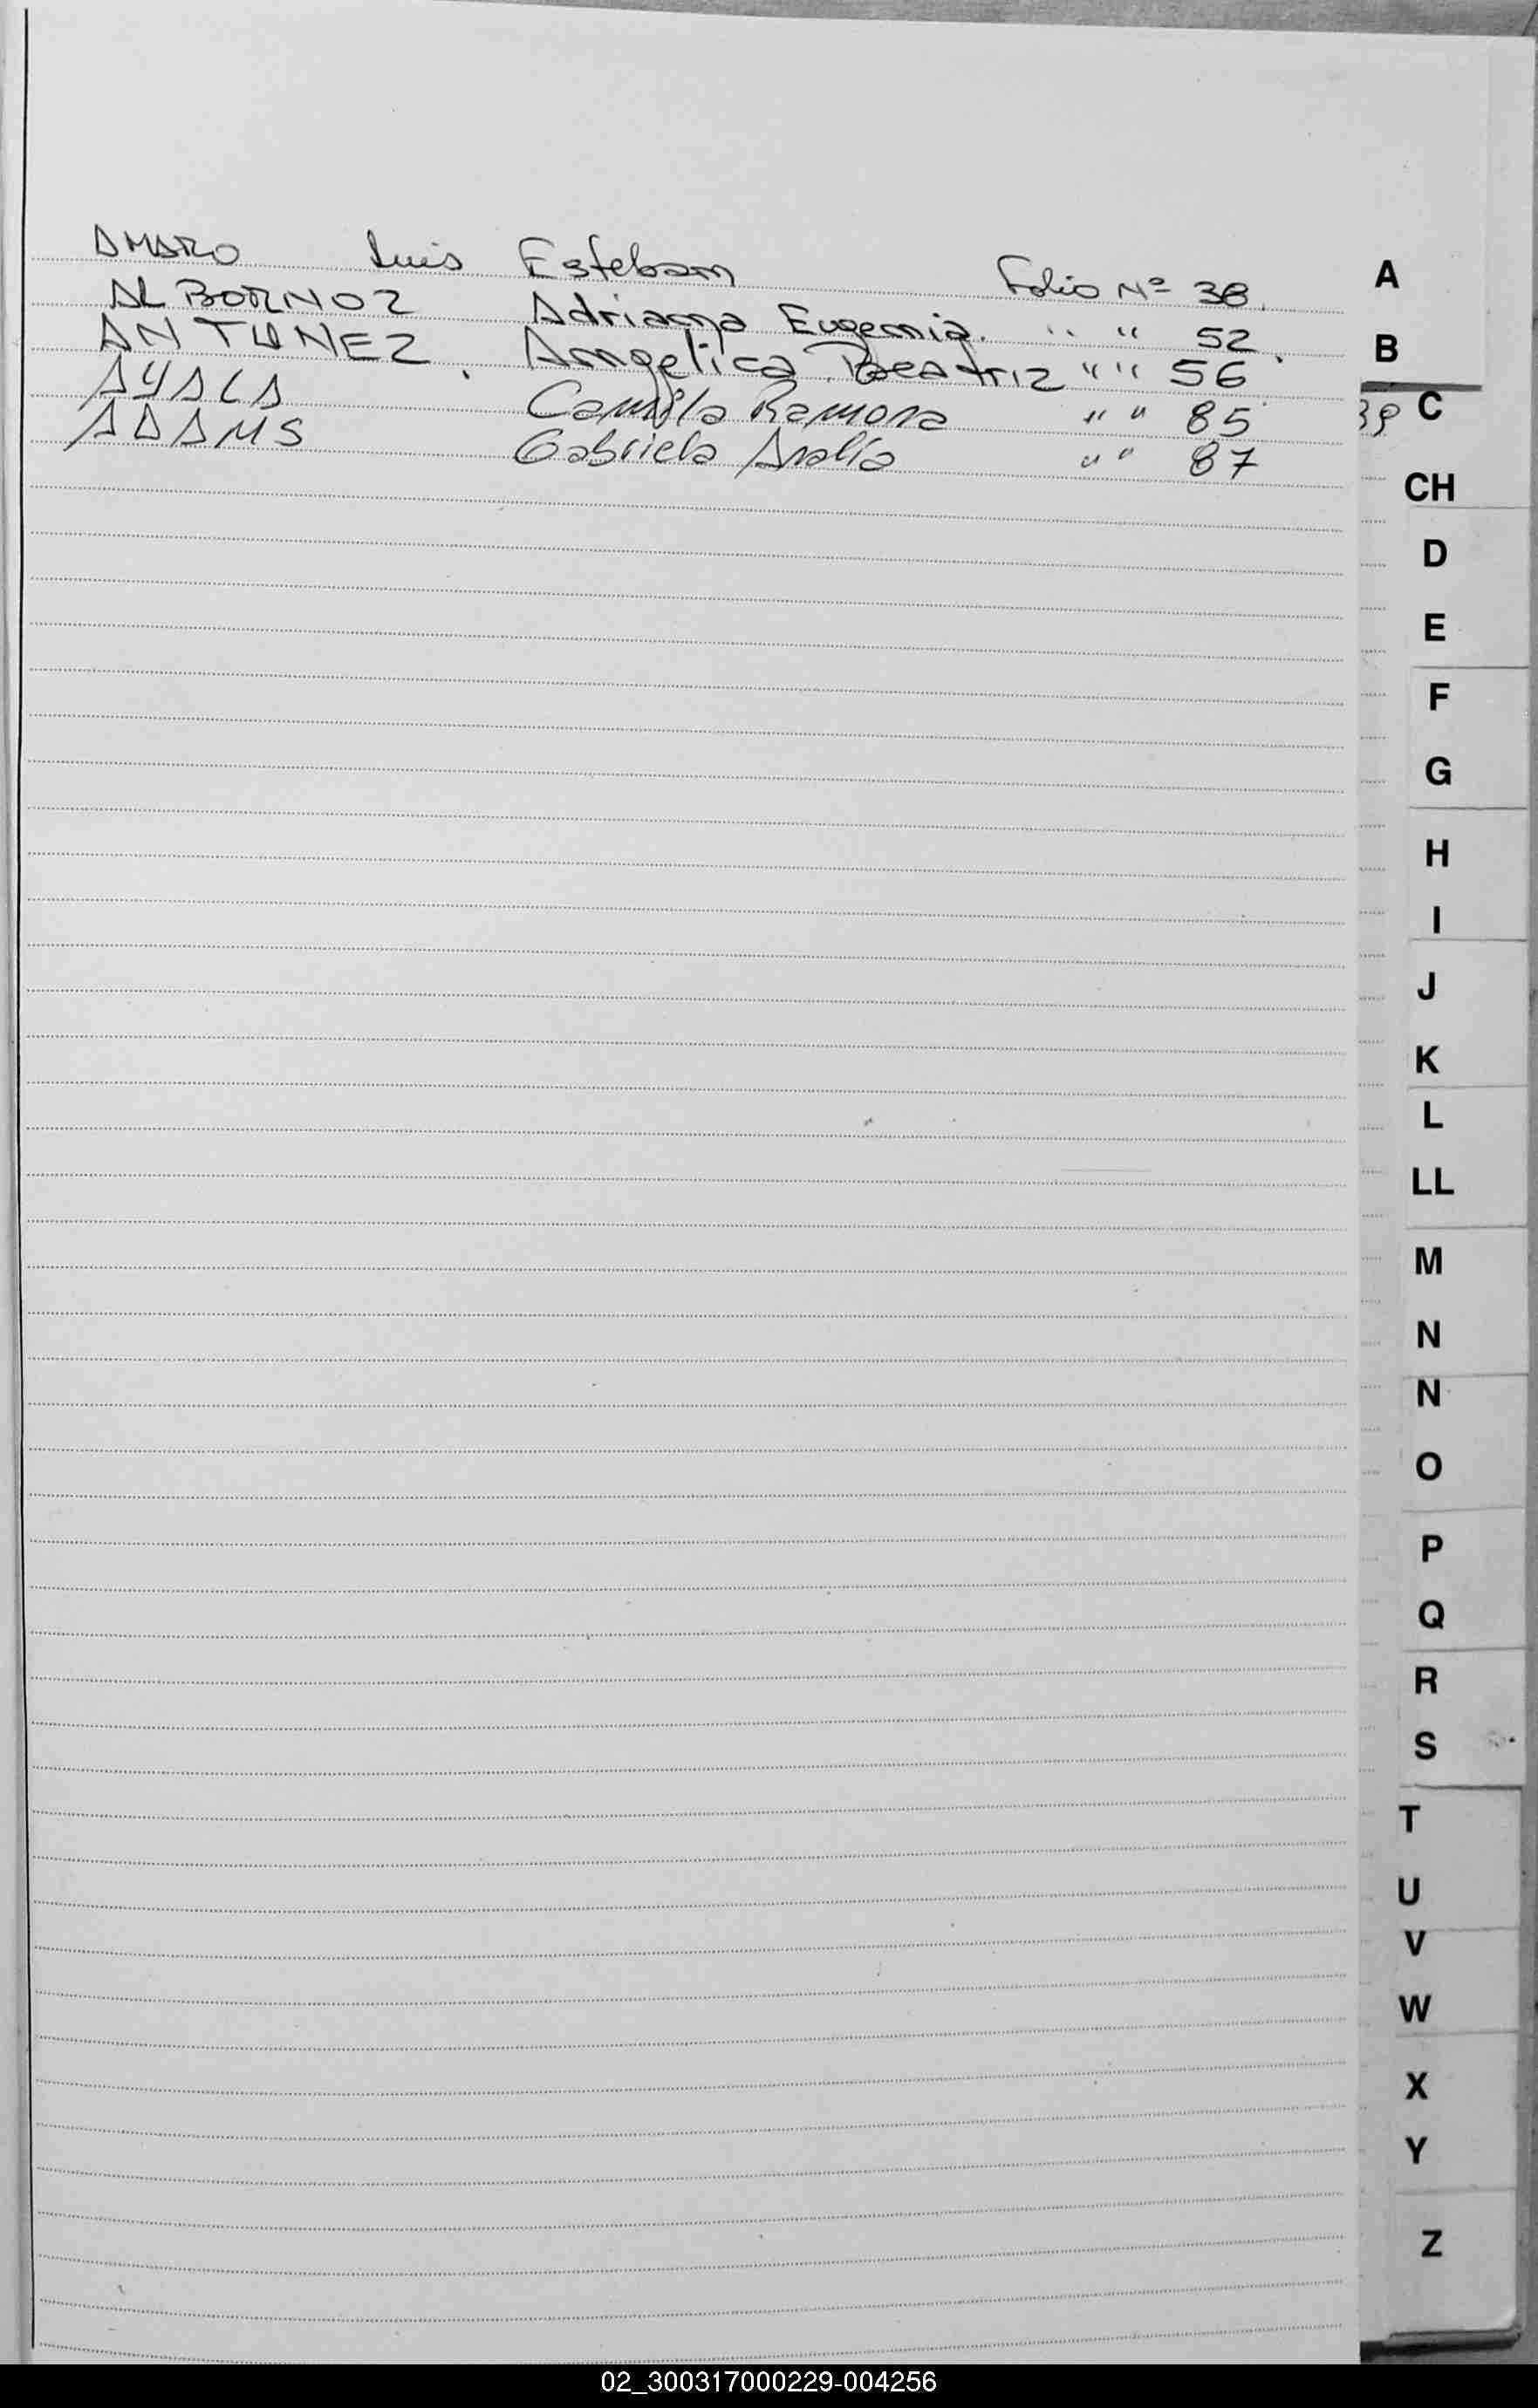 AMARO Luis Esteban Folio Nº 38.
ALBORNOZ Adriana Eugenia. " " 52
ANTUNEZ. Angelica Beatriz " " 56.
AYALA Camila Ramona " " 85
ADAMS Gabriela Analía " " 87
39
A
B
C
CH
D
E
F
G
H
I
J
K
L
LL
M
N
N
O
P
Q
R
S
T
U
V
W
X
Y
Z
02_300317000229-004256